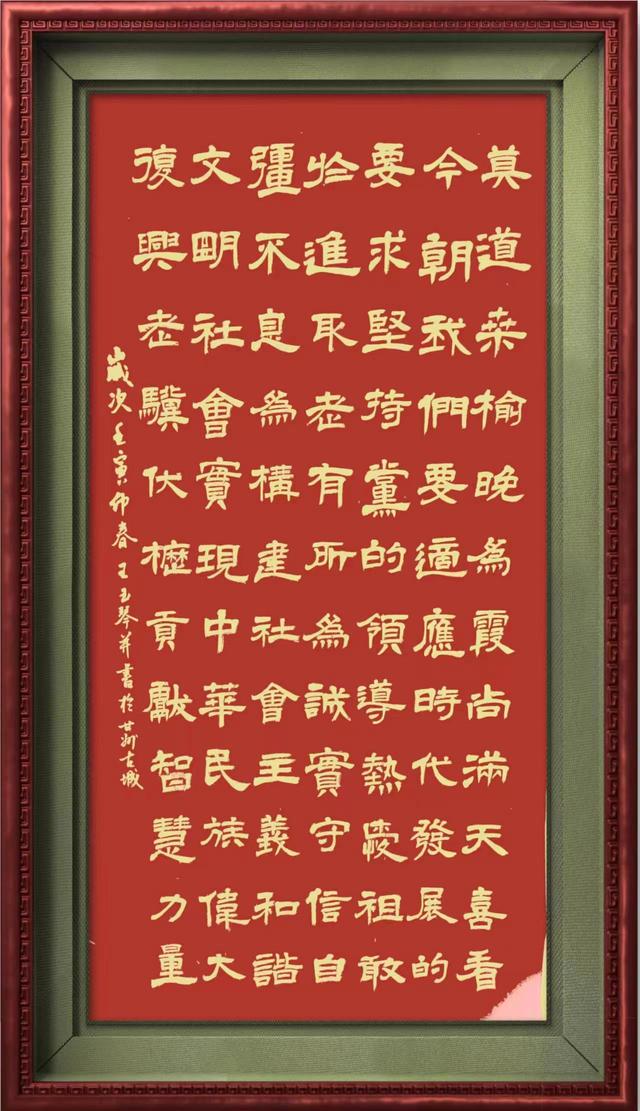 莫道桑榆晚為霞尚滿天喜看
今朝我們要適應時代發展的
要求堅持黨的領導熱愛祖敢
於進取老有所為誠實守信自
彊不息為構建社會主義和諧
文明社會實現中華民族偉大
復興老驥伏櫪貢獻智慧力量
歲次壬寅仲春王玉琴并書於甘州古城